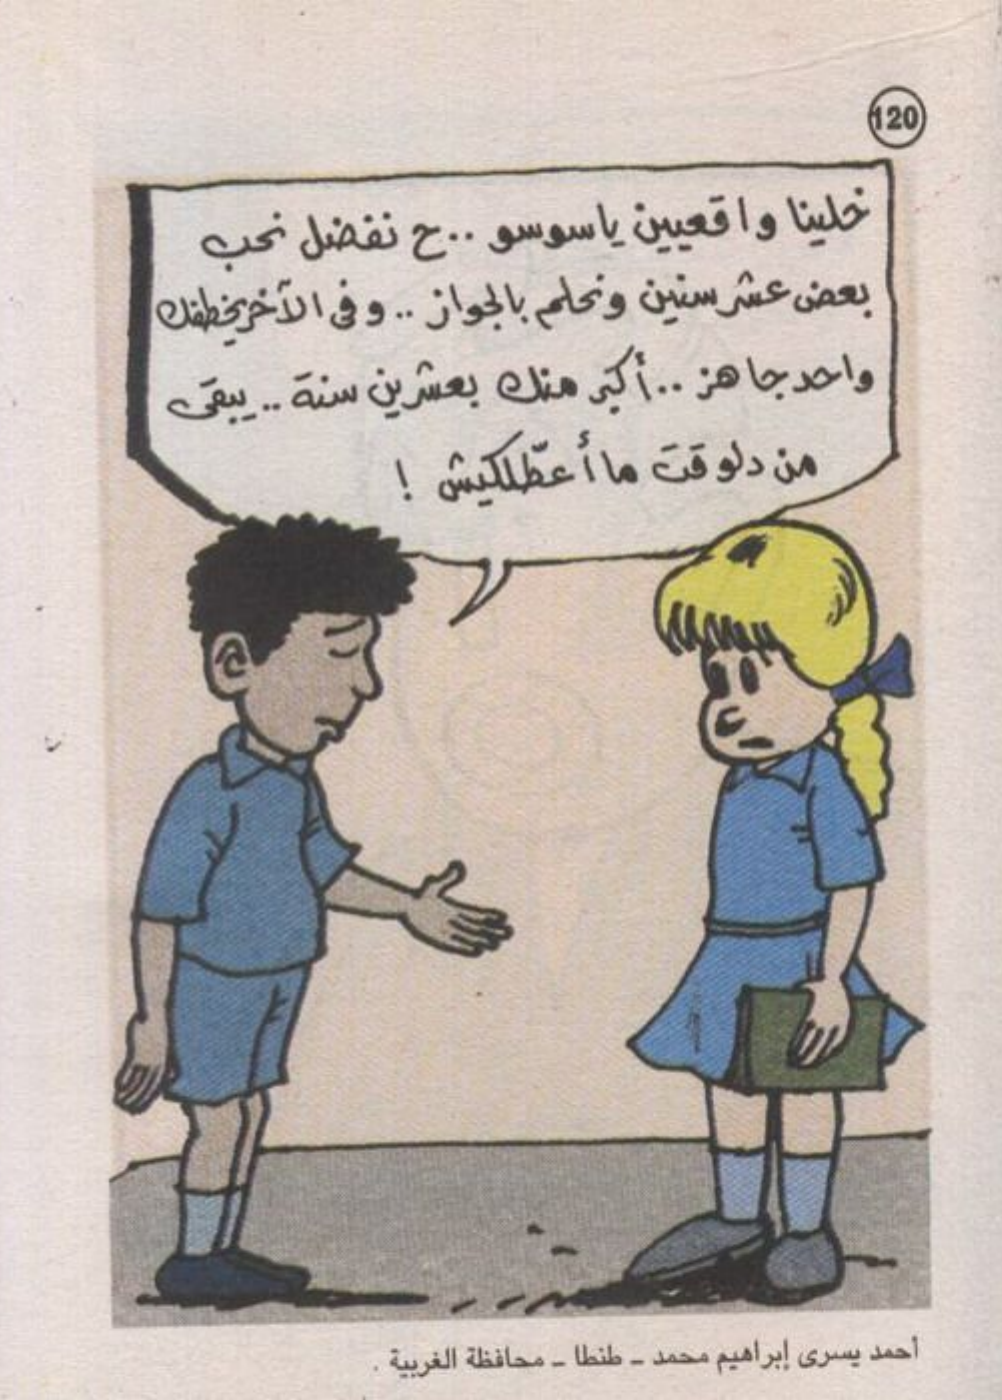 120
خلينا واقعيين ياسوسو .. ح نفضل نحب
بعض عشر سنين ونحلم بالجواز .. وفى الآخر يخطفك
واحد جاهز .. أكبر منك بعشرين سنة .. يبقى
من دلوقت ما أعطّلكيش !
أحمد يسرى إبراهيم محمد ـ طنطا ـ محافظة الغربية .